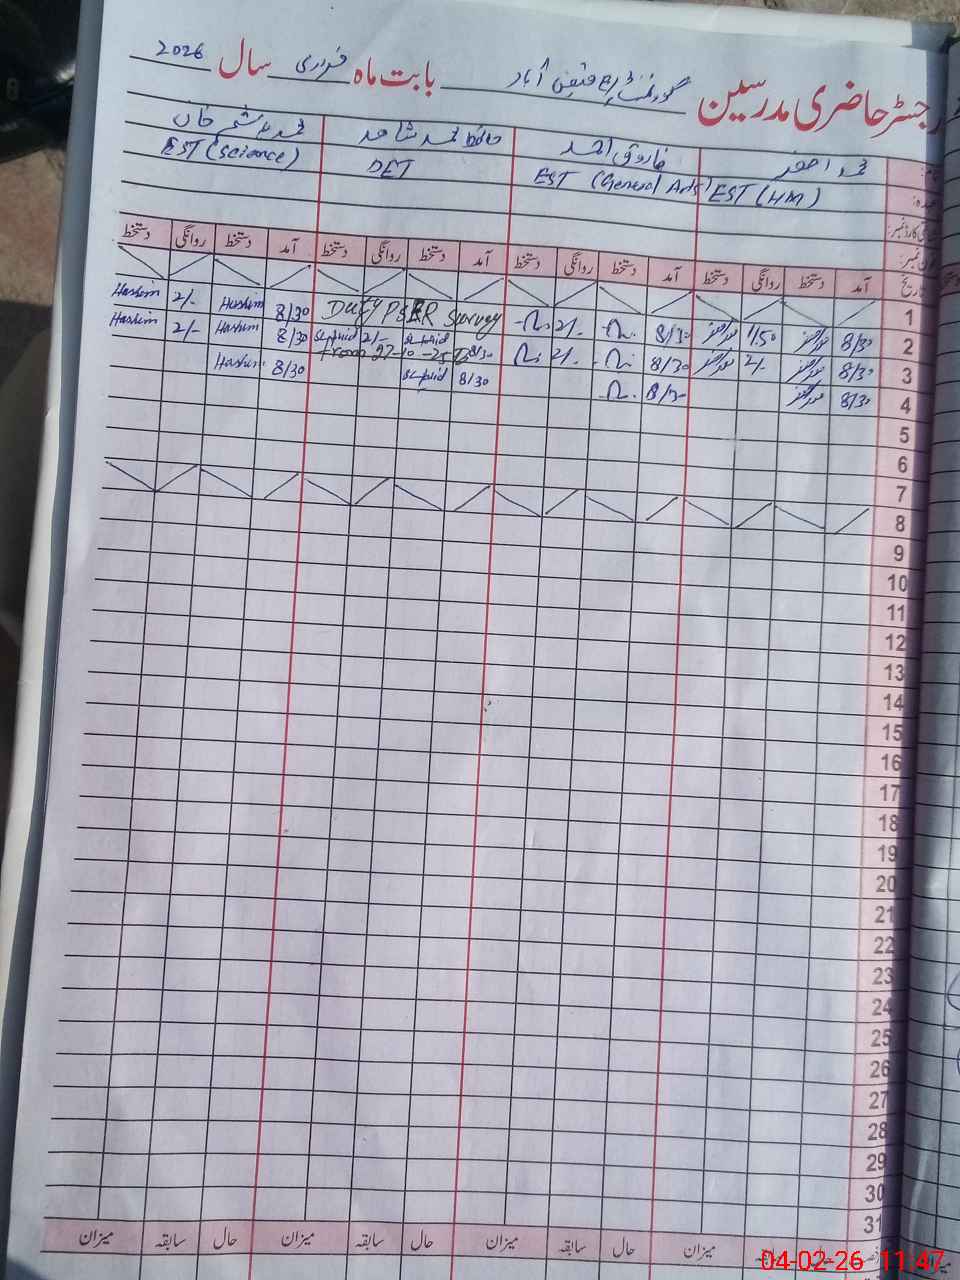 رجسٹر حاضری مدرسین گورنمنٹ فیض آباد بابت ماہ فروری سال 2026
محمد اصغر فاروق احمد حافظ محمد شاہد محمد ہاشم خان
EST (HM) EST (General Arts) DET EST (Science)
آمد دستخط روانگی دستخط آمد دستخط روانگی دستخط آمد دستخط روانگی دستخط آمد دستخط روانگی دستخط
تاریخ
1
2 8/30 1/50 8/30 2/- Duty PSER Survey 8/30 Hashim 2/- Hashim
3 8/30 2/- 8/30 2/- 8/30 2/- 8/30 Hashim 2/- Hashim
From 27-10-25 To
4 8/30 8/30 8/30 8/30 Hashim
5
6
7
8
9
10
11
12
13
14
15
16
17
18
19
20
21
22
23
24
25
26
27
28
29
30
31
حال سابقہ میزان حال سابقہ میزان حال سابقہ میزان حال سابقہ میزان
04-02-26 11:47